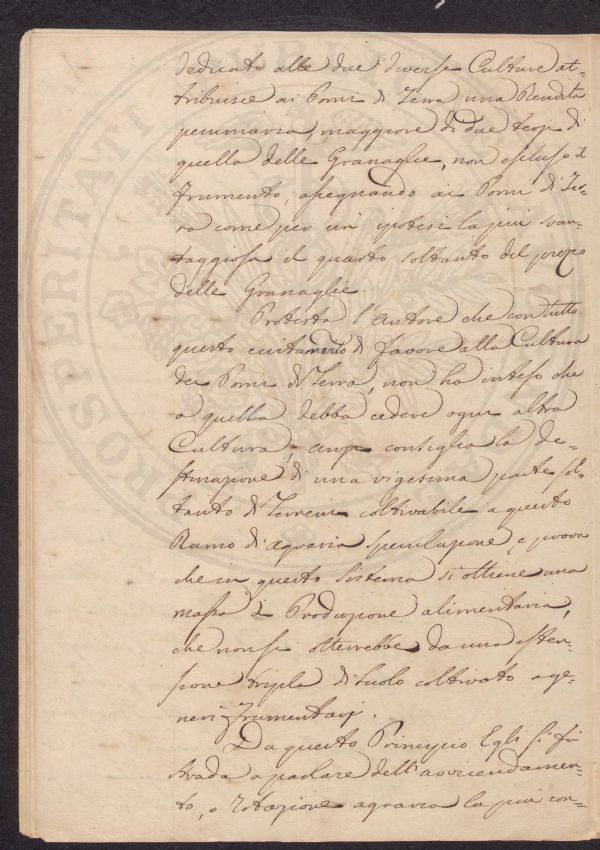 dedicato alle due diverse Culture at-
tribuisce ai Pomi di Terra una Rendita
pecuniaria, maggiore di due terzi di
quella delle Granaglie, non escluso il
frumento, assegnando ai Pomi di Ter-
ra come per un' ipotesi la più svan-
taggiosa il quarto soltanto del prezzo
delle Granaglie.
Protesta l'autore che con tutto
questo eccitamento di favore alla Cultura
dei Pomi di Terra, non ha inteso che
a quella debba cedere ogni altra
Cultura, anzi consiglia la de-
stinazione di una vigesima parte sol-
tanto di Terreni coltivabile a questo
Ramo di agraria speculazione, e prova
che in questo Sistema si ottiene una
massa di Produzione alimentaria,
che non si otterrebbe da una esten-
sione tripla di Suolo coltivato a ge-
neri frumentarj.
Da questo Principio Egli si fa
strada a parlare dell'avvicendamen-
to, o rotazione agraria la più con-
PROSPERITATI
PUBLI